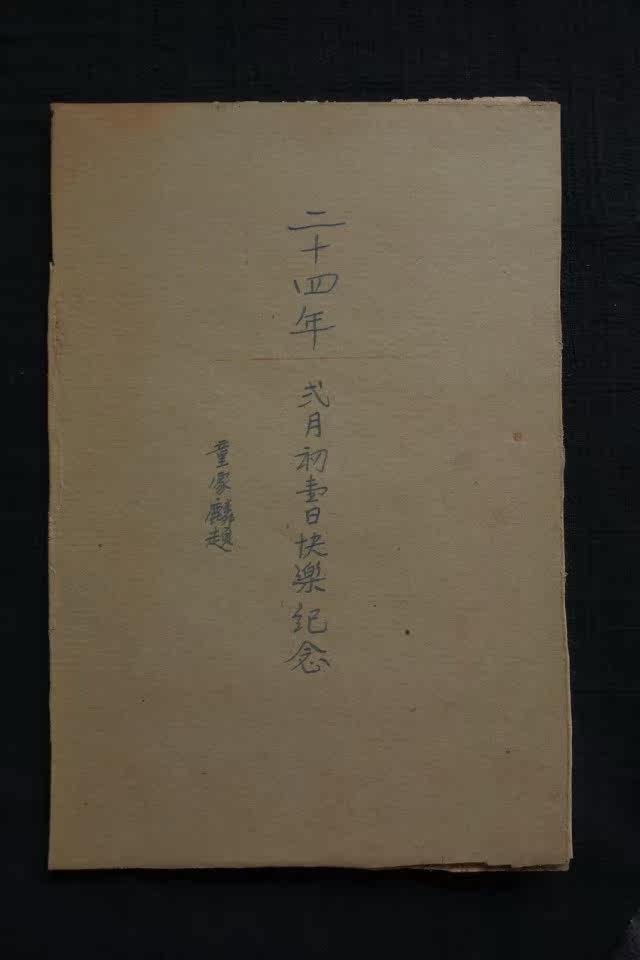 二十四年 弍月初壹日快樂紀念
童家麟題